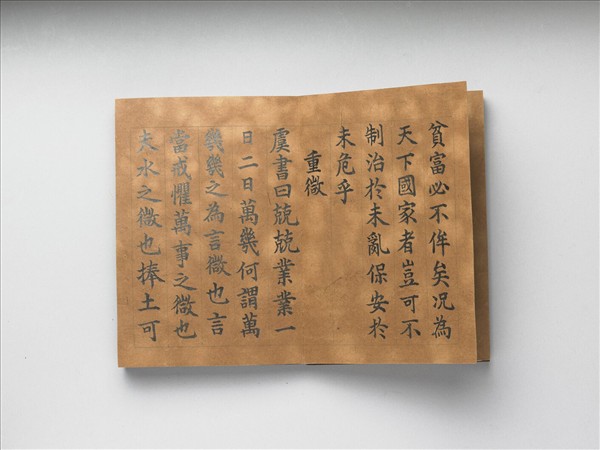 貧富必不侔矣况為
天下國家者豈可不
制治於未亂保安於
未危乎
重微
虞書曰兢兢業業一
日二日萬幾何謂萬
幾幾之為言微也言
當戒懼萬事之微也
夫水之微也捧土可